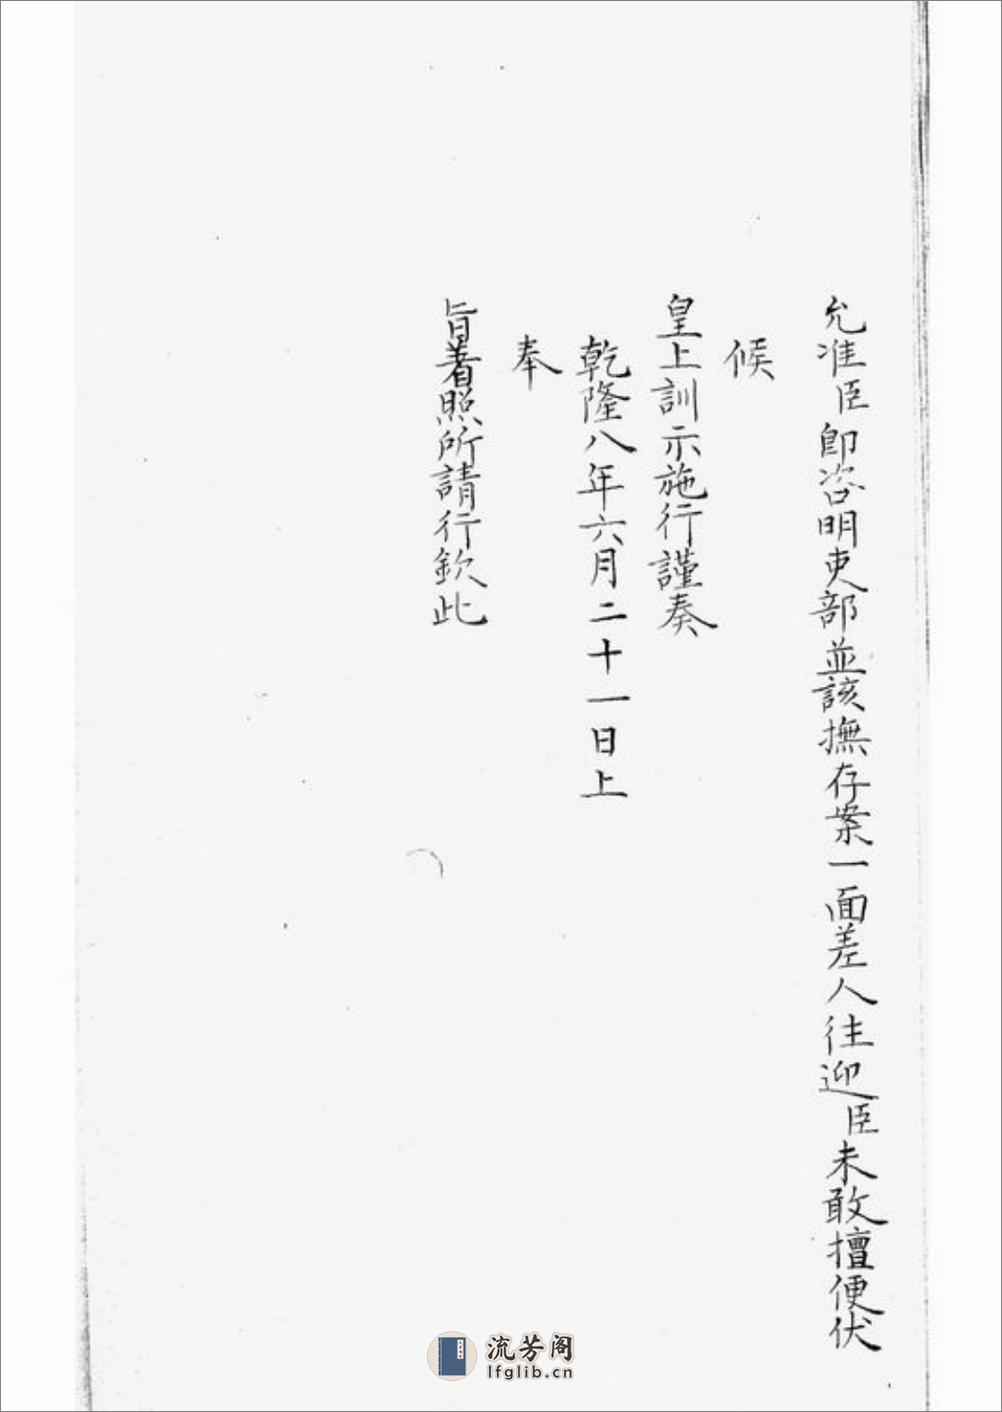 允准臣即咨明吏部並該撫存案一面差人往迎臣未敢擅便伏
候
皇上訓示施行謹奏
乾隆八年六月二十一日上
奉
旨著照所請行欽此
流芳阁
lfglib.cn